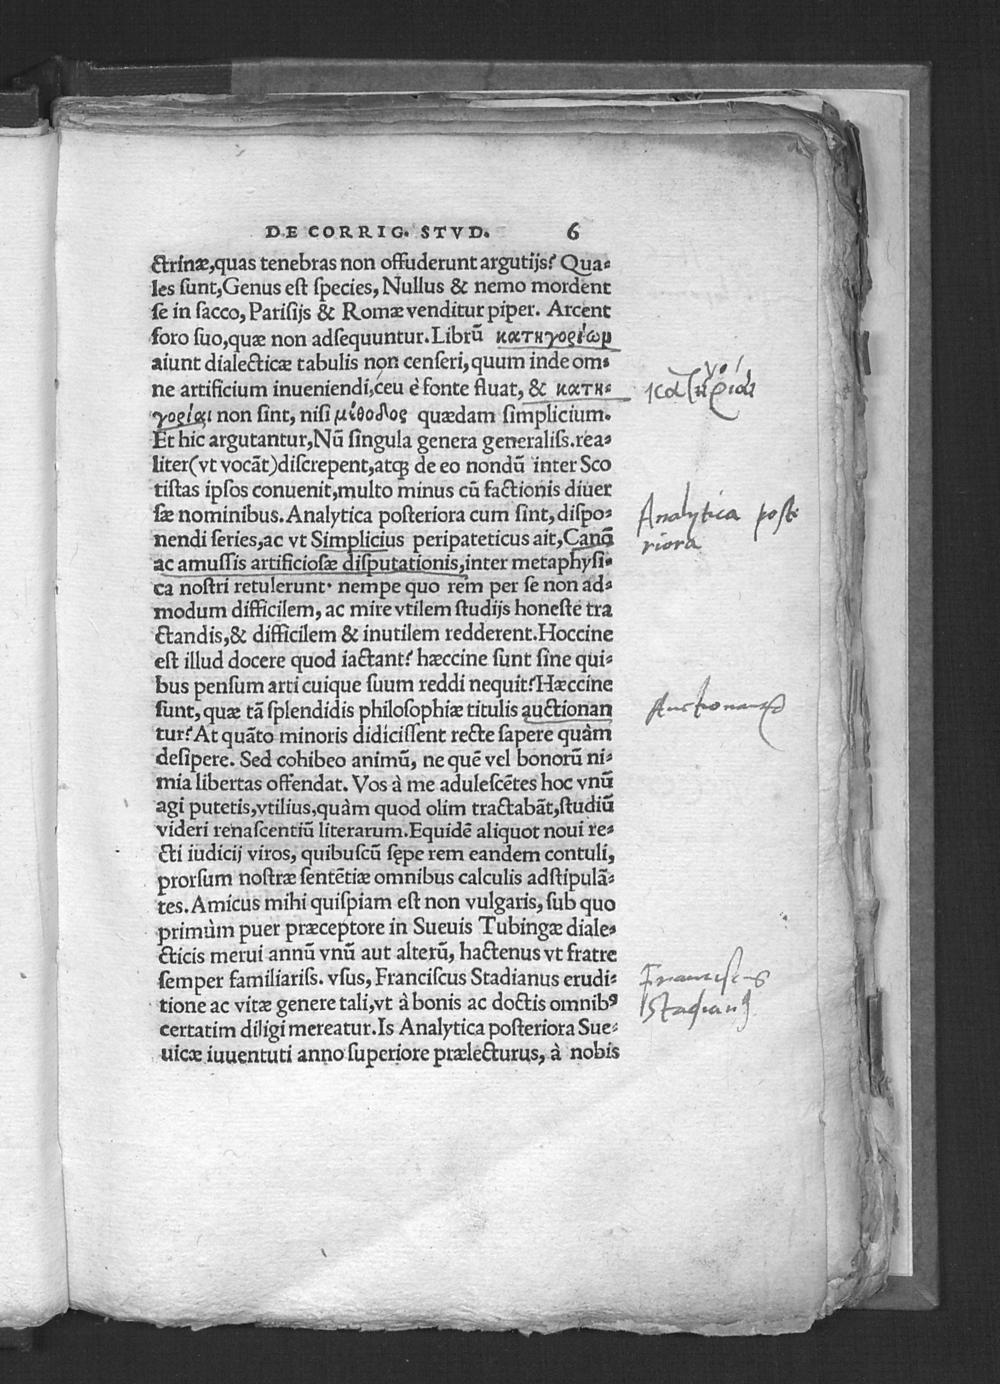 DE CORRIG. STVD. 6
ctrinæ,quas tenebras non offuderunt argutijs? Qua-
les sunt,Genus est species, Nullus & nemo mordent
se in sacco, Parisijs & Romæ venditur piper. Arcent
foro suo,quæ non adsequuntur. Librū κατηγοριῶμ
aiunt dialecticæ tabulis non censeri, quum inde om-
ne artificium inueniendi,ceu è fonte fluat, & κατη-
γορίαι non sint, nisi μέθοδος quædam simplicium.
Et hic argutantur,Nū singula genera generaliss.rea-
liter(vt vocāt)discrepent,atqꝫ de eo nondū inter Sco
tistas ipsos conuenit,multo minus cū factionis diuer
sæ nominibus. Analytica posteriora cum sint, dispo-
nendi series,ac vt Simplicius peripateticus ait,Canō
ac amussis artificiosæ disputationis,inter metaphysi-
ca nostri retulerunt· nempe quo rem per se non ad-
modum difficilem, ac mire vtilem studijs honeste tra
ctandis,& difficilem & inutilem redderent.Hoccine
est illud docere quod iactant? hæccine sunt sine qui-
bus pensum arti cuique suum reddi nequit?Hæccine
sunt, quæ tā splendidis philosophiæ titulis auctionan
tur?At quāto minoris didicissent recte sapere quàm
desipere. Sed cohibeo animū, ne quē vel bonorū ni-
mia libertas offendat. Vos à me adulescētes hoc vnū
agi putetis,vtilius,quàm quod olim tractabāt,studiū
videri renascentiū literarum.Equidē aliquot noui re-
cti iudicij viros, quibuscū sępe rem eandem contuli,
prorsum nostræ sentētiæ omnibus calculis adstipulā-
tes. Amicus mihi quispiam est non vulgaris, sub quo
primùm puer præceptore in Sueuis Tubingæ diale-
cticis merui annū vnū aut alterū, hactenus vt fratre
semper familiariss. vsus, Franciscus Stadianus erudi-
tione ac vitæ genere tali,vt à bonis ac doctis omnibꝰ
certatim diligi mereatur. Is Analytica posteriora Sue-
uicæ iuuentuti anno superiore prælecturus, à nobis
Analytica poste
riora
Franciscus
Stadianꝰ